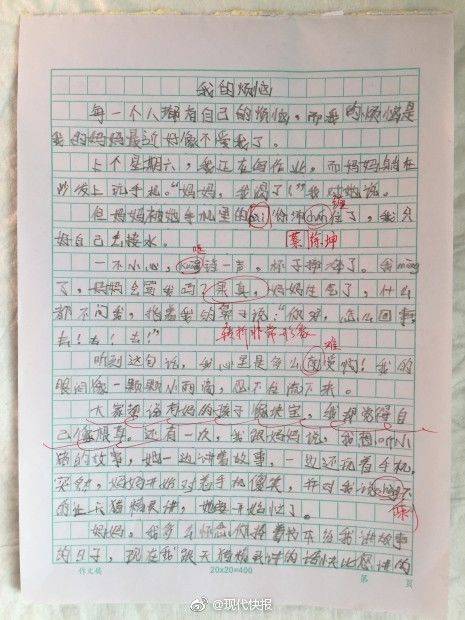 我的烦恼
每一个人都有自己的烦恼，而我的烦恼是
我的妈妈最近好像不爱我了。
上个星期六，我正在写作业，而妈妈躺在
沙发上玩手机。“妈妈，我渴了！”我对她说。
但妈妈被她手机里的 住了，我只
缠
好自己去接水。
蔡徐坤
一不小心， 一声，杯子摔碎了。我
了，妈妈会骂我吗？果真，妈妈生气了，什么
都不问我，指着我的鼻子说：“你呀，怎么回事，
去！去！去！”
转折非常形象
听到这句话，我心里是多么 受啊！我的
难
眼泪像一颗颗小雨滴，忍不住流下来。
大家都说有妈的孩子像块宝，我却觉得自
己像根草。还有一次，我跟妈妈说，我想听小
猪的故事，她一边讲着故事，一边还玩着手机，
突然，妈妈开始对着手机傻笑，并对我说
天猫精灵讲，她
陈
妈妈，我多么怀念你捧着书本给我讲故事
的日子，现在我跟天猫精灵讲的话快比您讲的
作文稿
20x20=400
第 页
@现代快报